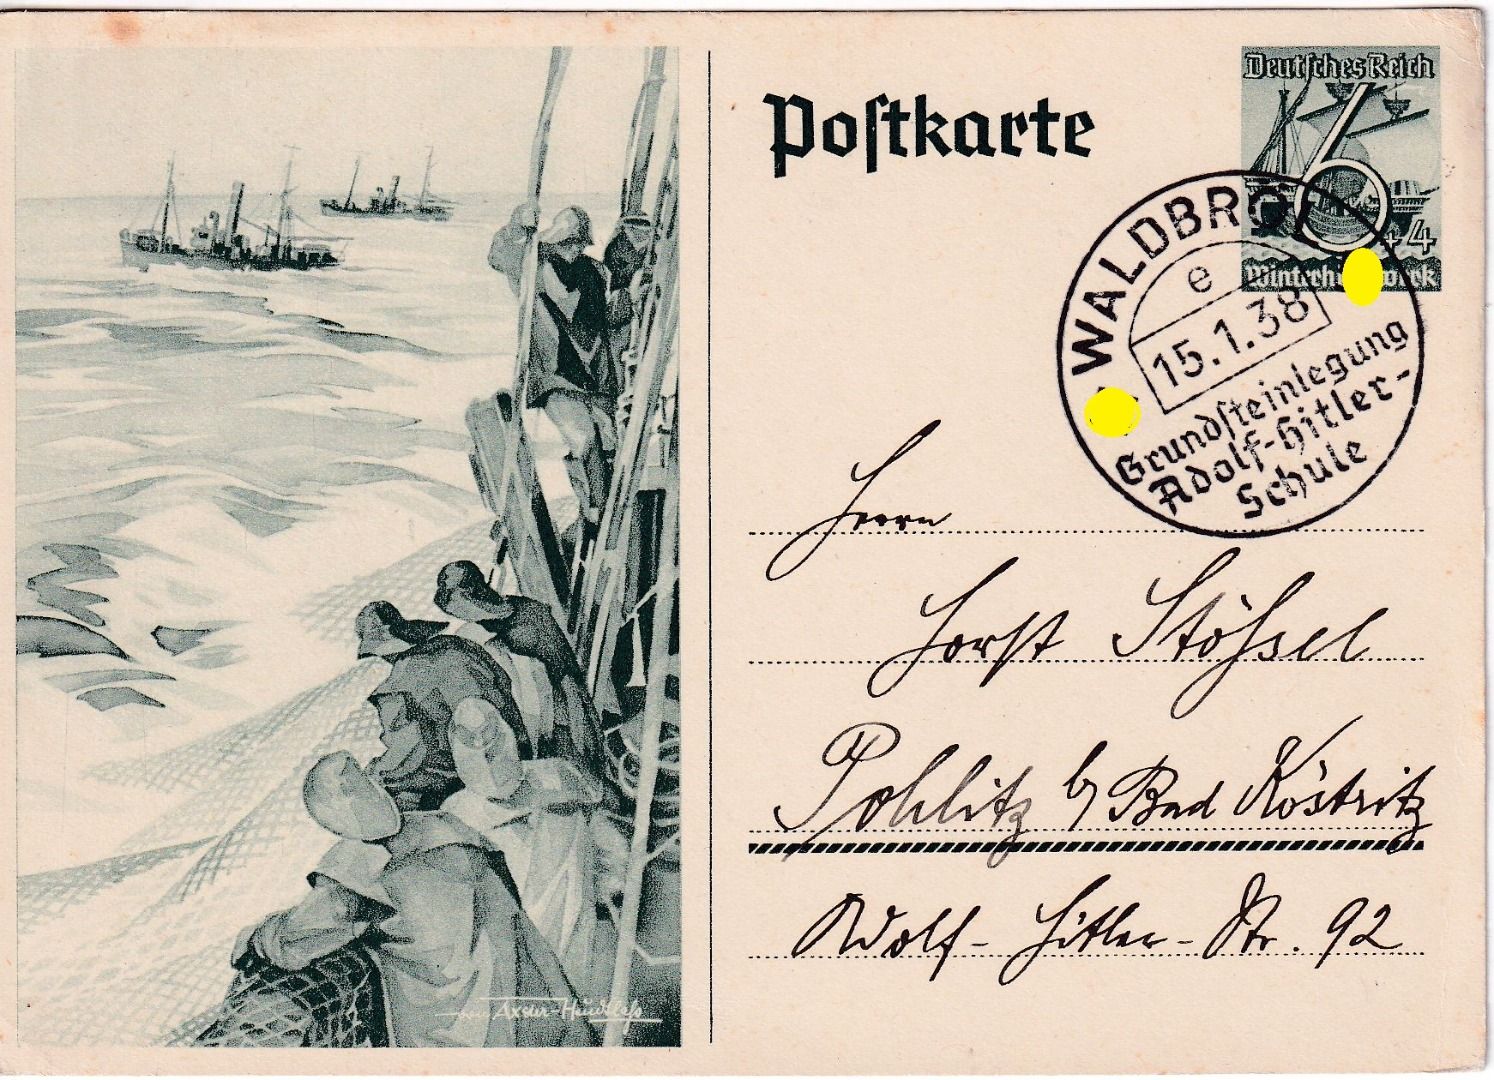 Postkarte
Deutsches Reich
6
+ 4
WALDBRÖL
e
15.1.38
Grundsteinlegung
Adolf-Hitler-
Schule
Herrn
Horst Stößel
Pohlitz b/ Bad Köstritz
Adolf-Hitler-Str. 92
von Axster-Heudtlaß